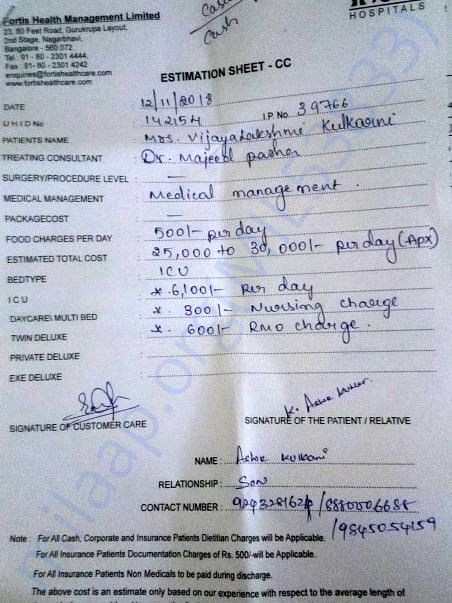 Fortis Health Management Limited
23, 80 Feet Road, Gurukrupa Layout,
2nd Stage, Nagarbhavi,
Bangalore - 560 072.
Tel : 91 - 80 - 2301 4444,
Fax : 91- 80 - 2301 4242
enquiries@fortishealthcare.com
www.fortishealthcare.com
Cash
HOSPITALS
ESTIMATION SHEET - CC
DATE : 12/11/2018
UHID No : 142154 I.P No. 39766
PATIENTS NAME : Mrs. Vijayalakshmi Kulkarni
TREATING CONSULTANT : Dr. Majeed pasha
SURGERY/PROCEDURE LEVEL : —
MEDICAL MANAGEMENT : Medical management.
PACKAGECOST : —
FOOD CHARGES PER DAY : 500/- per day
ESTIMATED TOTAL COST : 25,000 to 30,000/- per day (Apx)
BEDTYPE : ICU
ICU : *. 6,100/- per day
DAYCARE\ MULTI BED : *. 300/- Nursing charge
TWIN DELUXE : *. 600/- RMO charge.
PRIVATE DELUXE :
EXE DELUXE :
SIGNATURE OF CUSTOMER CARE
SIGNATURE OF THE PATIENT / RELATIVE
NAME : Kulkarni
RELATIONSHIP : Son
CONTACT NUMBER : / 8880006688
/9845054159
Note : For All Cash, Corporate and Insurance Patients Dietitian Charges will be Applicable.
For All Insurance Patients Documentation Charges of Rs. 500/-will be Applicable.
For All Insurance Patients Non Medicals to be paid during discharge.
The above cost is an estimate only based on our experience with respect to the average length of